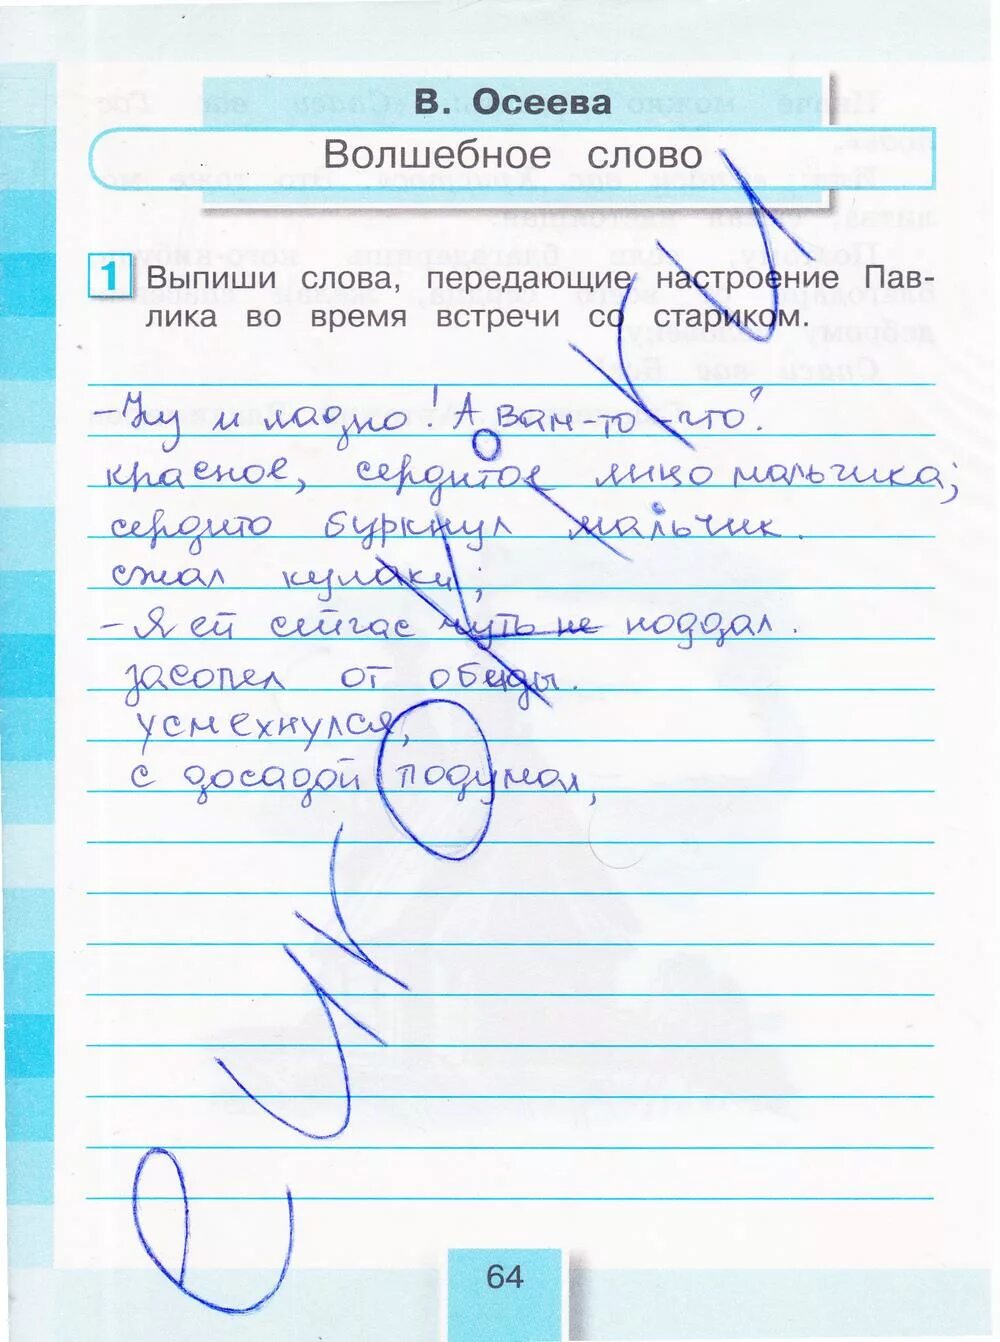 В. Осеева
Волшебное слово
1 Выпиши слова, передающие настроение Пав-
лика во время встречи со стариком.
-Ну и ладно! А вам-то-что?
красное, сердитое лицо мальчика;
сердито буркнул мальчик.
сжал кулаки;
-Я ей сейчас чуть не поддал.
засопел от обиды.
усмехнулся,
с досадой подумал,
64